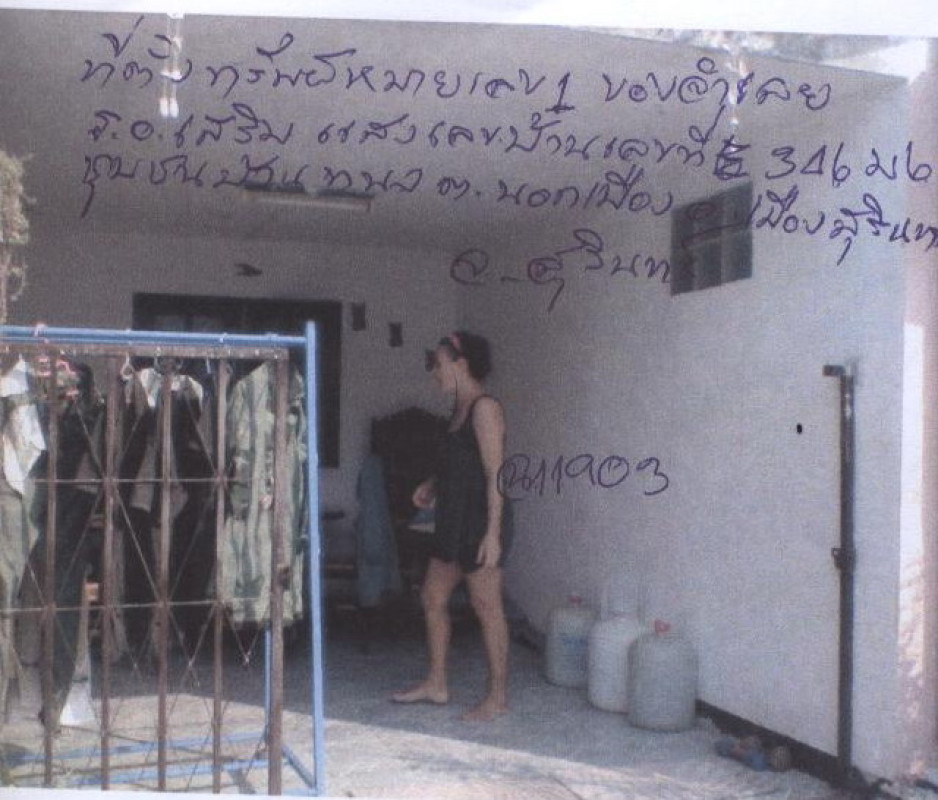 ที่ตั้งทรัพย์หมายเลข 1 ของจำเลย
ร.อ.เสริม แสง เลขบ้านเลขที่ 346 ม6
ชุมชน ต.นอกเมือง อ.เมืองสุรินทร์
จ.สุรินทร์
11903